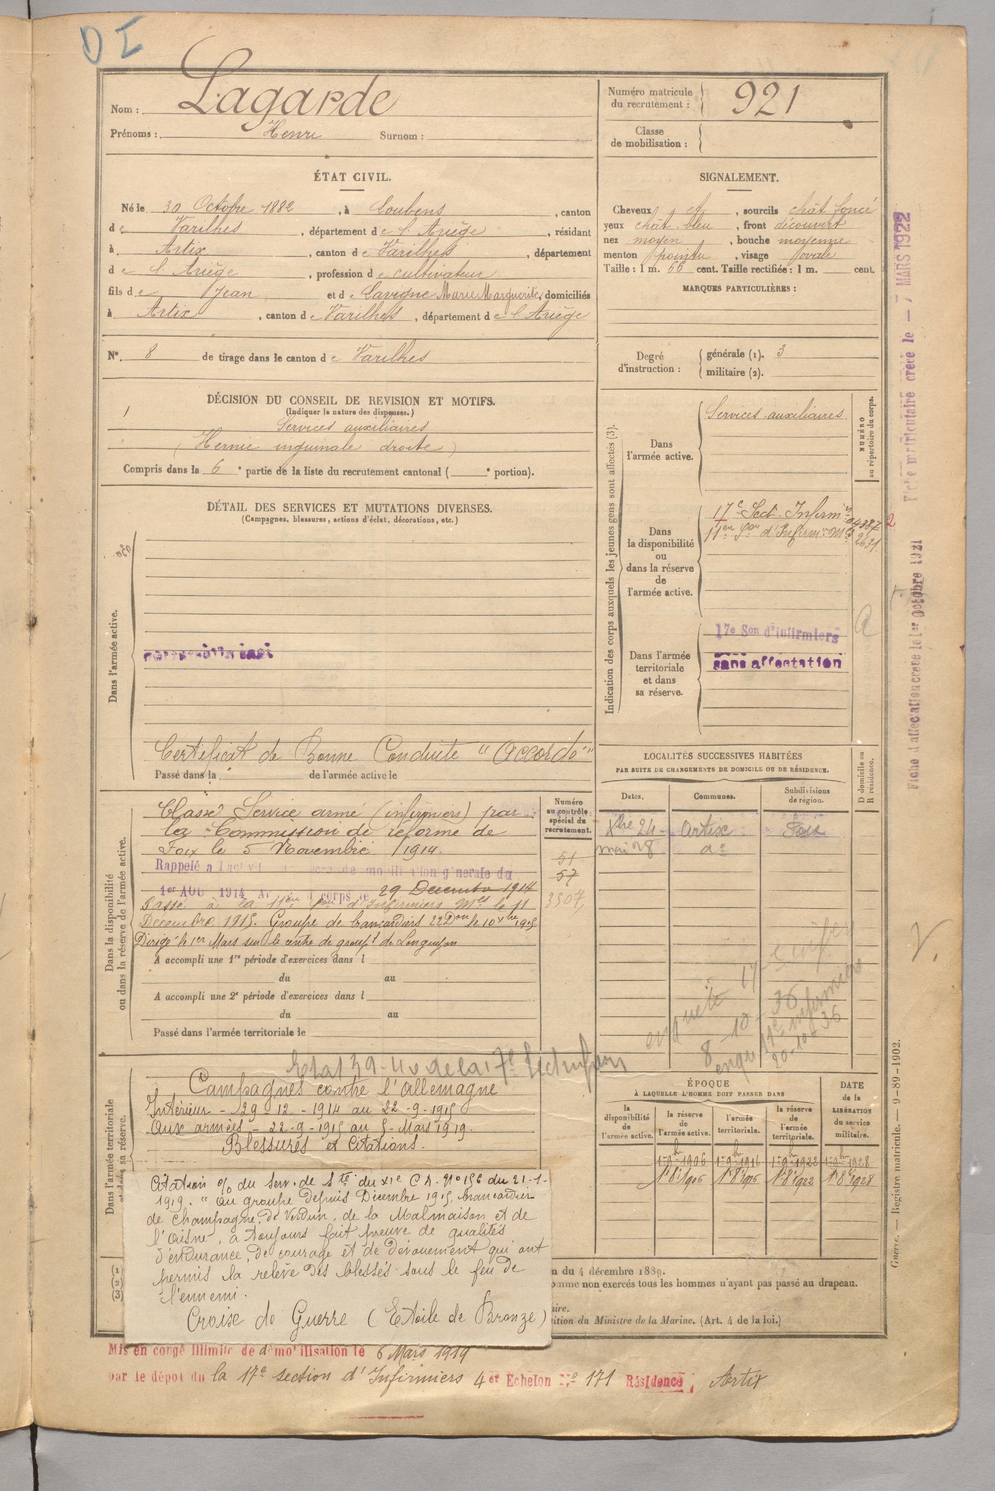 DI
Nom : Lagarde
Prénoms : Henri Surnom :
Numéro matricule du recrutement : 921
Classe de mobilisation :
ÉTAT CIVIL.
Né le 30 Octobre 1882, à Loubens, canton
de Varilhes, département de l'Ariège, résidant
à Artix, canton de Varilhes, département
de l'Ariège, profession de cultivateur
fils de Jean et de Lavigne Marie Marguerite, domiciliés
à Artix, canton de Varilhes, département de l'Ariège
N° 8 de tirage dans le canton de Varilhes
SIGNALEMENT.
Cheveux et, sourcils chât foncé
yeux chât bleu, front découvert
nez moyen, bouche moyenne
menton pointu, visage ovale
Taille : 1 m. 66 cent. Taille rectifiée : 1 m. cent.
MARQUES PARTICULIÈRES :
Degré d'instruction : générale (1). 3
militaire (2).
DÉCISION DU CONSEIL DE REVISION ET MOTIFS.
(Indiquer la nature des dispenses.)
Services auxiliaires
(Hernie inguinale droite)
Compris dans la 6e partie de la liste du recrutement cantonal ( e portion).
DÉTAIL DES SERVICES ET MUTATIONS DIVERSES.
(Campagnes, blessures, actions d'éclat, décorations, etc.)
Dans l'armée active.
Certificat de Bonne Conduite "Accordé"
Passé dans la de l'armée active le
Indication des corps auxquels les jeunes gens sont affectés (3).
NUMÉRO au répertoire du corps.
Dans l'armée active.
Services auxiliaires
Dans la disponibilité ou dans la réserve de l'armée active.
17e Sect. Infirm
11en Son d'Infirm. Mres
Dans l'armée territoriale et dans sa réserve.
17e Son d'Infirmiers
sans affectation
Fiche matriculaire créée le — 7 MARS 1922
Fiche d'affectation créée le 1er octobre 1921
Dans la disponibilité ou dans la réserve de l'armée active.
Numéro au contrôle spécial du recrutement.
Classé Service armé (infirmiers) par
la Commission de réforme de
Foix le 5 Novembre 1914.
51
57
3807
Rappelé à l'activité mobilisation générale du
1er AOU 1914 Ar corps le 29 Décembre 1914
Passé à la 11ème Son d'Infirmiers Mres le 11
Décembre 1915. Groupe de brancardiers 22 Don le 10 xbre 1915
Dirigé le 1er Mars sur le centre de groupt de Longuyon
A accompli une 1re période d'exercices dans l
du au
A accompli une 2e période d'exercices dans l
du au
Passé dans l'armée territoriale le
LOCALITÉS SUCCESSIVES HABITÉES
PAR SUITE DE CHANGEMENTS DE DOMICILE OU DE RÉSIDENCE.
Dates. Communes. Subdivisions de région.
D domicile ou R résidence.
Xbre 24 Artix Foix
mai 28 do
enquête 17
8-10-36
20-10-36
Etat 39-40 de la 17e Sect Infirm
Dans l'armée territoriale
sa réserve.
Campagnes contre l'Allemagne
Intérieur - 29-12-1914 au 22-9-1915
Aux armées - 22-9-1915 au 5 Mars 1919.
Blessures et Citations.
Citation o/o du serv. de Sté du XIe C.A. N° 156 du 21-1-
1919. "Au groupe depuis Décembre 1915, brancardier
de Champagne, de Verdun, de la Malmaison et de
l'Aisne, a toujours fait preuve de qualités
d'endurance, de courage et de dévouement qui ont
permis la relève des blessés sous le feu de
l'ennemi.
Croix de Guerre (Etoile de Bronze)
ÉPOQUE
À LAQUELLE L'HOMME DOIT PASSER DANS
la disponibilité de l'armée active. la réserve de l'armée active. l'armée territoriale. la réserve de l'armée territoriale.
DATE de la LIBÉRATION du service militaire.
1er 9bre 1906 1er 9bre 1916 1er 9bre 1922 1er 9bre 1928
1er 8bre 1906 1er 8bre 1916 1er 8bre 1922 1er 8bre 1928
n du 4 décembre 1889.
omme non exercés tous les hommes n'ayant pas passé au drapeau.
ire.
ition du Ministre de la Marine. (Art. 4 de la loi.)
Guerre. — Registre matricule. — 9-89-1902.
Mis en congé illimité de démobilisation le 6 Mars 1919
par le dépôt du la 17e section d'Infirmiers 4er Echelon N° 171 Résidence : Artix